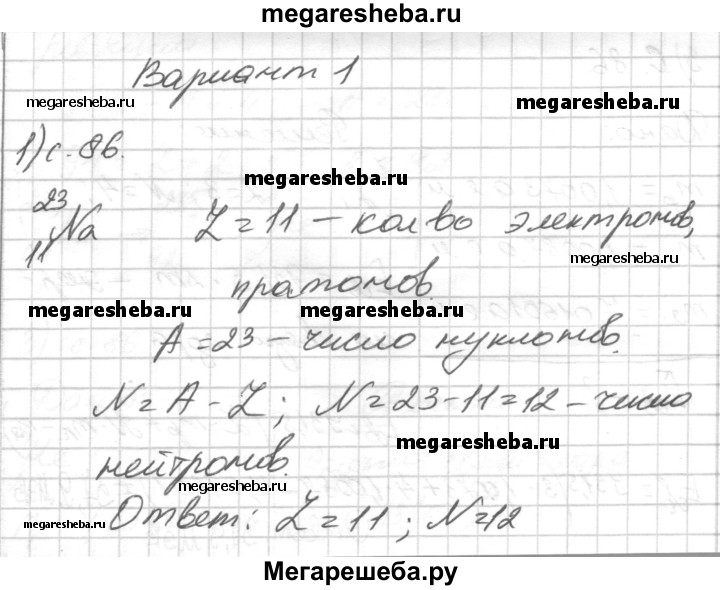 megaresheba.ru
Вариант 1
megaresheba.ru
megaresheba.ru
1) с. 86.
megaresheba.ru
²³₁₁Na Z = 11 – кол во электронов,
megaresheba.ru
протонов.
megaresheba.ru
megaresheba.ru
A = 23 – число нуклонов.
N = A - Z ; N = 23 - 11 = 12 – число
megaresheba.ru
нейтронов.
megaresheba.ru
megaresheba.ru
Ответ: Z = 11 ; N = 12
Мегарешеба.ру